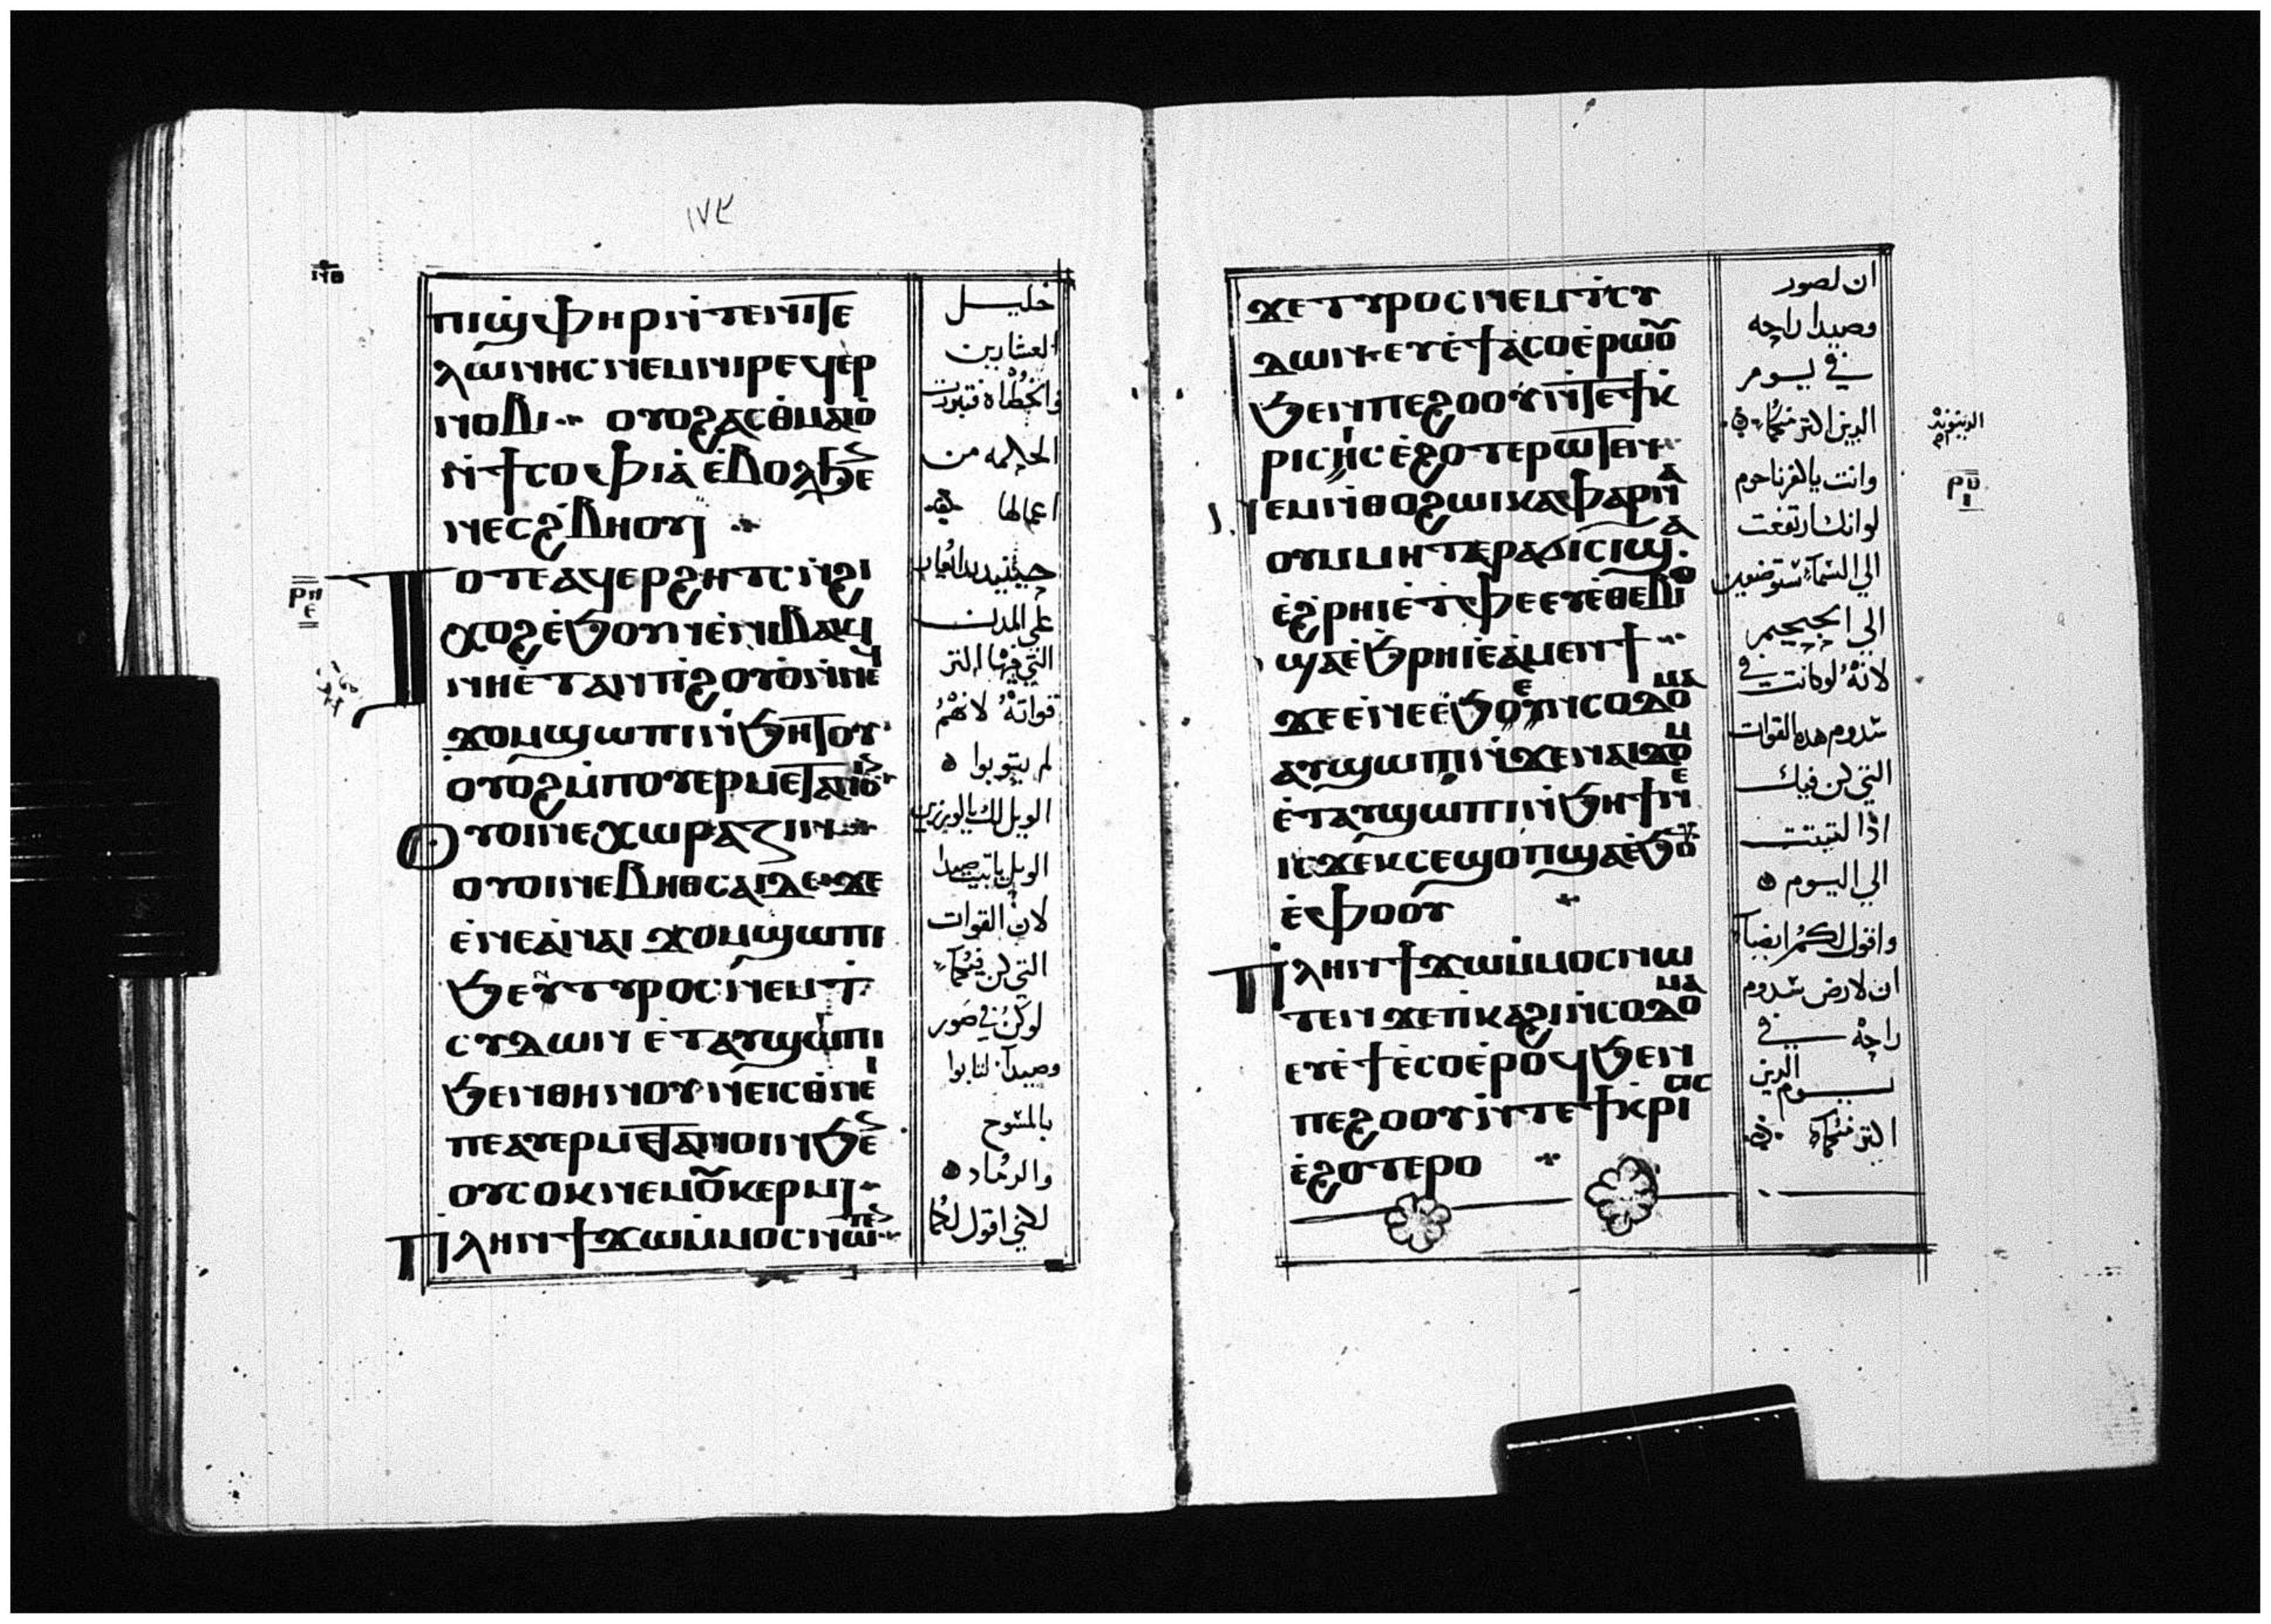 ١٧٣
ⲡⲓϣ̀ⲫⲏⲣⲓⲛ̀ⲧⲉⲛⲓⲧⲉ
ⲗⲱⲛⲏⲥⲛⲉⲙⲛⲓⲣⲉϥⲉⲣ
ⲛⲟⲃⲓ ⲟⲩⲟϩⲁⲥⲑ̀ⲙⲁⲓⲟ̀
ⲛ̀ϯⲥⲟⲫⲓⲁ̀ⲉ̀ⲃⲟⲗϧⲉ
ⲛⲉⲥϩ̀ⲃⲏⲟⲩⲓ
ⲧⲟⲧⲉⲁϥⲉⲣϩⲏⲧⲥⲛ̀ϩⲓ
ⲭⲟϩⲉ̀ϧⲟⲩⲛⲉ̀ⲛⲓⲃⲁⲕⲓ
ⲛⲏⲉ̀ⲧⲁⲛⲡⲓϩⲟⲩⲟ̀ⲛ̀ⲛⲉϥ
ϫⲟⲙϣⲱⲡⲓⲛ̀ϧⲏⲧⲟⲩ
ⲟⲩⲟϩⲙ̀ⲡⲟⲩⲉⲣⲙⲉⲧⲁⲛⲟⲓⲛ
ⲟⲩⲟⲓⲛⲉⲭⲱⲣⲁⲍⲓⲛ
ⲟⲩⲟⲓⲛⲉⲃⲏⲑⲥⲁⲓⲇⲉ ϫⲉ
ⲉ̀ⲛⲉⲁ̀ⲛⲁⲓ ϫⲟⲙϣⲱⲡⲓ
ϧⲉⲛⲧⲩⲣⲟⲥⲛⲉⲙⲧ̀
ⲥⲩⲇⲱⲛ ⲉ̀ⲧⲁⲩϣⲱⲡⲓ
ϧⲉⲛⲑⲏⲛⲟⲩⲛⲉⲓⲥⲑⲛⲉⲓ
ⲡⲉⲁⲩⲉⲣⲙⲉⲧⲁⲛⲟⲓⲛϧⲉⲛ
ⲟⲩⲥⲟⲕⲛⲉⲙⲟⲩⲕⲉⲣⲙⲓ
ⲡⲗⲏⲛϯϫⲱⲙ̀ⲙⲟⲥⲛⲱⲧⲉⲛ
خليل
العشارين
والخطاه فتبررت
الحكمه من
اعمالها
حينيذ بدا يعاير
علي المدن
التي فيها اكثر
قواته لانهم
لم يتوبوا
الويل لك يا كورزين
الويل يا بيت صيدا
لان القوات
التي كن فيكما
لو كن في صور
وصيدا لتابوا
بالمسوح
والرماد
لكني اقول لكما
ϫⲉⲧⲩⲣⲟⲥⲛⲉⲙⲧ̀ⲥⲩ
ⲇⲱⲛⲉⲩⲉ̀ϯⲁ̀ⲥⲟⲉ̀ⲣⲱⲟⲩ
ϧⲉⲛⲡⲉϩⲟⲟⲩⲛ̀ⲧⲉϯⲕ̀
ⲣⲓⲥⲓⲥⲉ̀ϩⲟⲧⲉⲣⲱⲧⲉⲛ
ⲛⲉⲙⲛ̀ⲑⲟϩⲱⲓⲕⲁⲫⲁⲣⲛⲁ
ⲟⲩⲙⲙⲏⲧⲉⲣⲁϭⲓⲥⲓϣⲁ
ⲉ̀ϩ̀ⲣⲏⲓⲉ̀ⲧ̀ⲫⲉⲉⲩⲉ̀ⲑⲉⲃⲓⲟ
ϣⲁⲉ̀ϧ̀ⲣⲏⲓⲉ̀ⲁ̀ⲙⲉⲛϯ
ϫⲉⲉ̀ⲛⲉⲉ̀ϧⲉⲛⲥⲟⲇⲟⲙⲁ
ⲁⲩϣⲱⲡⲓⲛ̀ϫⲉⲛⲁⲓϫⲟⲙ
ⲉ̀ⲧⲁⲩϣⲱⲡⲓⲛ̀ϧⲏϯⲛⲉ
ⲓⲥϫⲉⲕⲥⲉϣⲟⲡϣⲁⲉ̀ϧⲟⲩⲛ
ⲉ̀ⲫⲟⲟⲩ
ⲡⲗⲏⲛϯϫⲱⲙ̀ⲙⲟⲥⲛⲱ
ⲧⲉⲛ ϫⲉⲡ̀ⲕⲁϩⲓⲛ̀ⲥⲟⲇⲟⲙⲁ
ⲉⲩⲉ̀ϯⲉ̀ⲥⲟⲉ̀ⲣⲟϥϧⲉⲛ
ⲡⲉϩⲟⲟⲩⲛ̀ⲧⲉϯⲕ̀ⲣⲓⲥⲓⲥ
ⲉ̀ϩⲟⲧⲉⲣⲟ
ان لصور
وصيدا راحه
في يوم
الدين اكثر منكما
وانت يا كفرناحوم
لو انك ارتفعت
الي السماء ستوضعين
الي الجحيم
لانه لو كانت في
سدوم هده القوات
التي كن فيك
اذا لثبتت
الي اليوم
واقول لكم ايضا
ان لارض سدوم
راحه في
يوم الدين
اكثر منكما